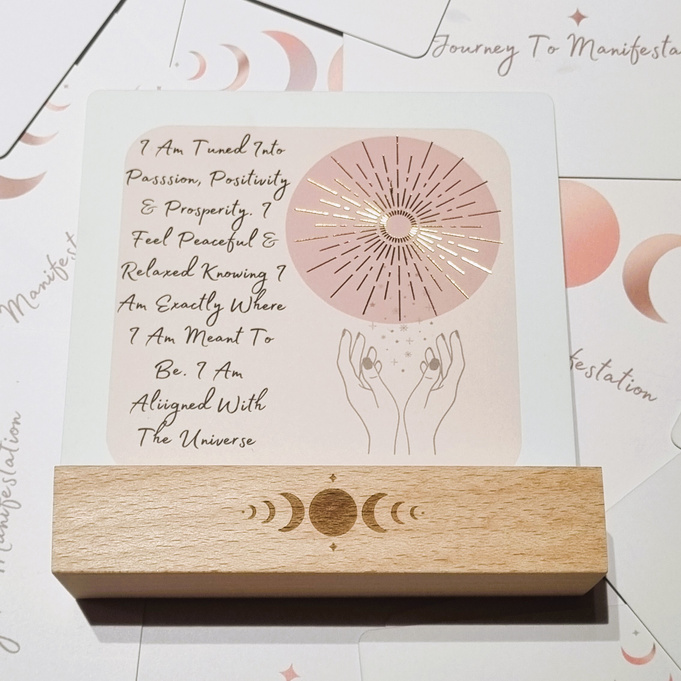 Journey To Manifesta
I Am Tuned Into
Passsion, Positivity
& Prosperity. I
Feel Peaceful &
Relaxed Knowing I
Am Exactly Where
I Am Meant To
Be. I Am
Aliigned With
The Universe
Manifest
festation
Manifestation